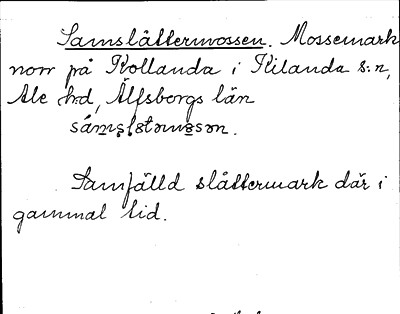 Samslåttermossen. Mossemark
norr på Kollanda i Kilanda s:n,
Ale h:d, Älfsborgs län
Samfälld slåttermark där i
gammal tid.